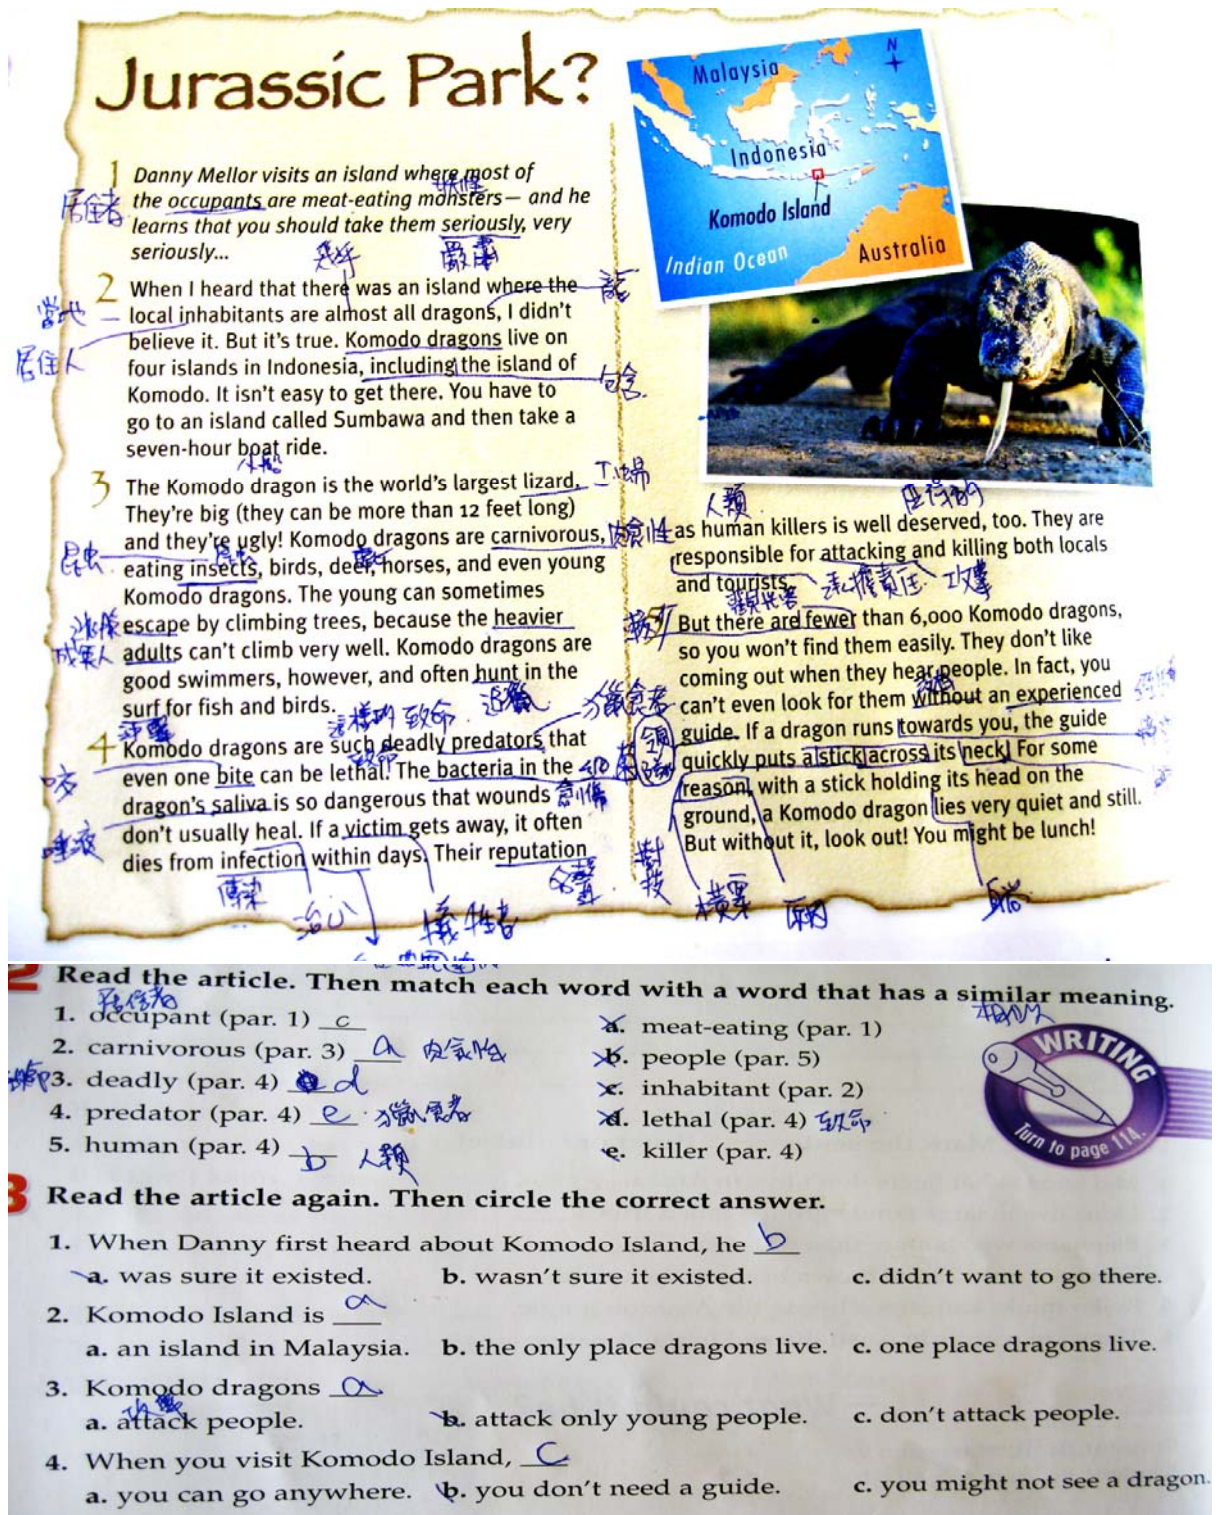 Jurassic Park?
N
Malaysia
Indonesia
Komodo Island
Indian Ocean
Australia
1 Danny Mellor visits an island where most of
居住者 the occupants are meat-eating monsters— and he
learns that you should take them seriously, very
seriously...
幾乎 嚴肅
2 When I heard that there was an island where the 龍
當地 local inhabitants are almost all dragons, I didn't
居住人 believe it. But it's true. Komodo dragons live on
four islands in Indonesia, including the island of 包含
Komodo. It isn't easy to get there. You have to
go to an island called Sumbawa and then take a
seven-hour boat ride.
小船
3 The Komodo dragon is the world's largest lizard.
They're big (they can be more than 12 feet long)
and they're ugly! Komodo dragons are carnivorous, 肉食性
昆虫 eating insects, birds, deer, horses, and even young
Komodo dragons. The young can sometimes
escape by climbing trees, because the heavier
成人 adults can't climb very well. Komodo dragons are
good swimmers, however, and often hunt in the
surf for fish and birds. 追獵
這樣的 致命 獵食者
4 Komodo dragons are such deadly predators that
致命
咬 even one bite can be lethal! The bacteria in the 細菌
dragon's saliva is so dangerous that wounds 創傷
唾液 don't usually heal. If a victim gets away, it often
dies from infection within days. Their reputation
傳染 治心 犧牲者 名聲
人類 应得的
as human killers is well deserved, too. They are
responsible for attacking and killing both locals
and tourists. 承擔責任 攻擊
觀光客
5 But there are fewer than 6,000 Komodo dragons,
so you won't find them easily. They don't like
coming out when they hear people. In fact, you
can't even look for them without an experienced
guide. If a dragon runs towards you, the guide
quickly puts a stick across its neck. For some
reason, with a stick holding its head on the
ground, a Komodo dragon lies very quiet and still.
But without it, look out! You might be lunch!
樹枝 橫 原因 躺
2 Read the article. Then match each word with a word that has a similar meaning.
居住者 相似
1. occupant (par. 1) c
2. carnivorous (par. 3) a 肉食性
3. deadly (par. 4) d
4. predator (par. 4) e 獵食者
5. human (par. 4) b 人類
a. meat-eating (par. 1)
b. people (par. 5)
c. inhabitant (par. 2)
d. lethal (par. 4) 致命
e. killer (par. 4)
WRITING
Turn to page 114.
3 Read the article again. Then circle the correct answer.
1. When Danny first heard about Komodo Island, he b
a. was sure it existed. b. wasn't sure it existed. c. didn't want to go there.
2. Komodo Island is a
a. an island in Malaysia. b. the only place dragons live. c. one place dragons live.
3. Komodo dragons a
攻擊
a. attack people. b. attack only young people. c. don't attack people.
4. When you visit Komodo Island, C
a. you can go anywhere. b. you don't need a guide. c. you might not see a dragon.